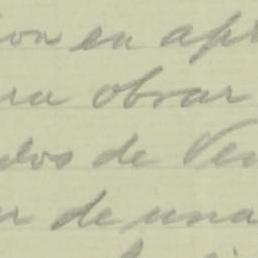 ion en apr
ra obrar
ulos de Ven
ar de una